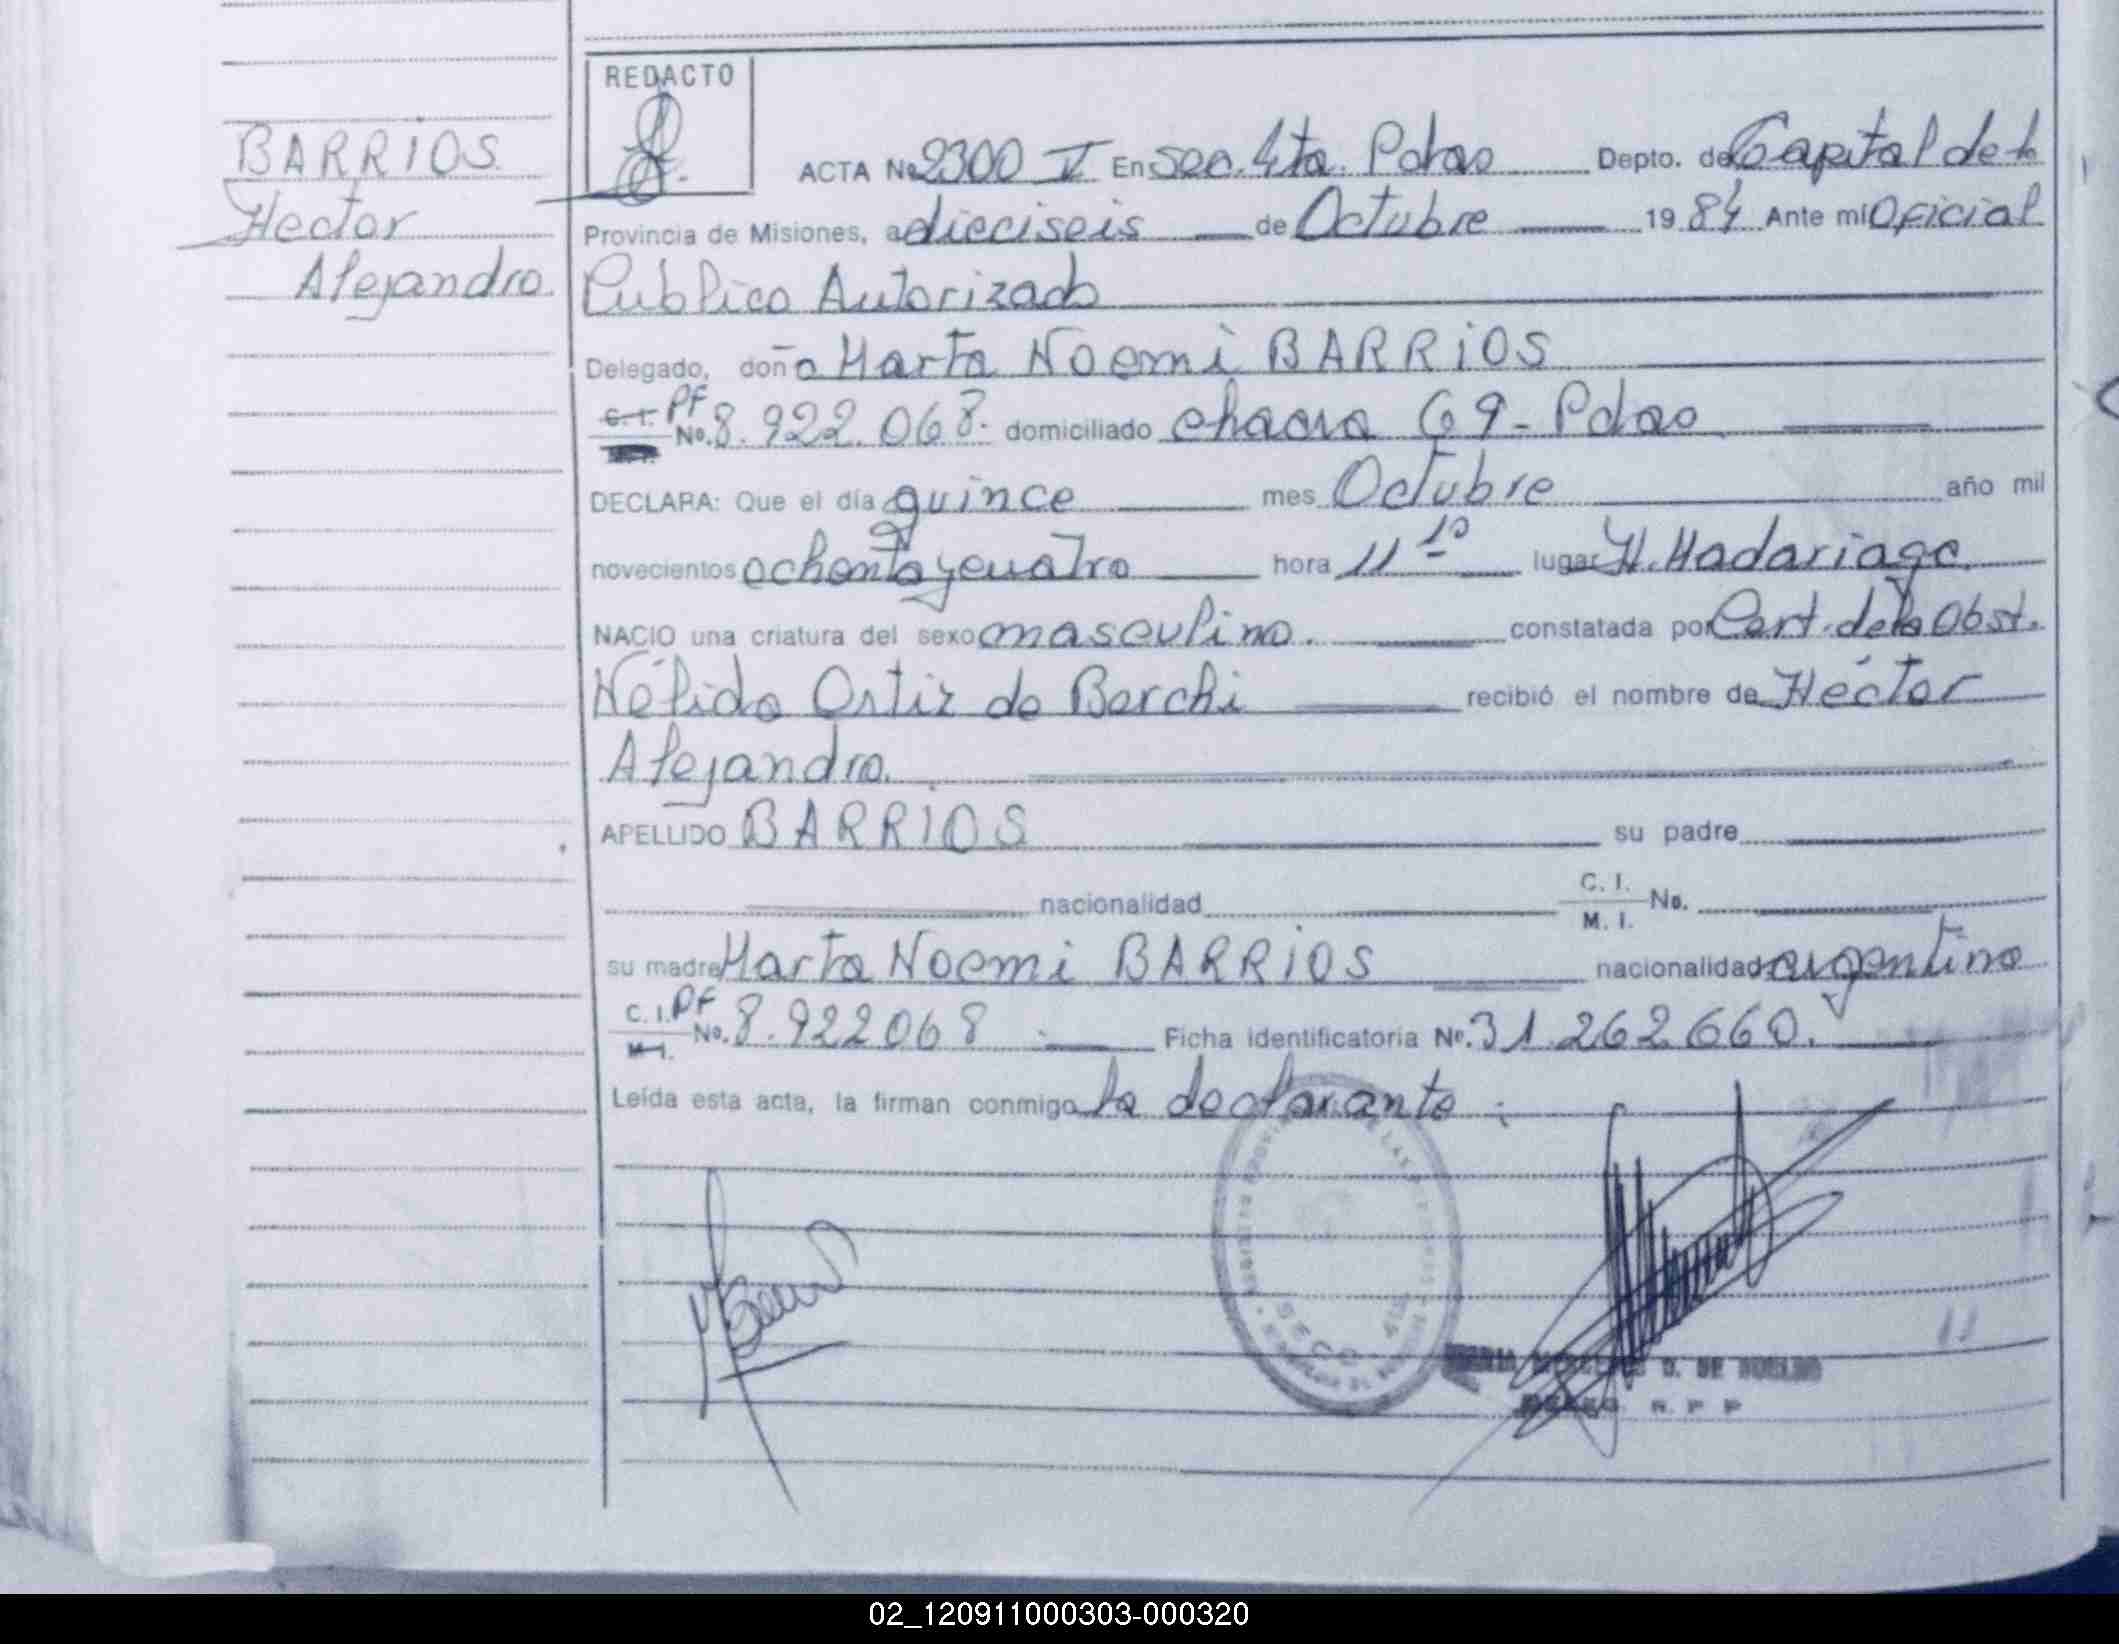 REDACTO
BARRIOS
Hector
Alejandro.
ACTA No 2300 V En Sec. 4ta. Pdas Depto. de Capital de la
Provincia de Misiones, a dieciseis de Octubre 19 84 Ante mí Oficial
Publico Autorizado
Delegado, doña Marta Noemi BARRIOS
C. I. PF No. 8.922.068. domiciliado chacra 69 - Pdas
DECLARA: Que el día quince mes Octubre año mil
novecientos ochenta y cuatro hora 11 10 lugar H. Madariaga.
NACIO una criatura del sexo masculino. constatada por Cert. de la Obst.
Nélida Ortiz de Berchi recibió el nombre de Héctor
Alejandro.
APELLIDO BARRIOS su padre
nacionalidad C. I. M. I. No.
su madre Marta Noemi BARRIOS nacionalidad argentina
C. I. PF M. I. No. 8.922068 Ficha identificatoria Nº. 31.262.660.
Leída esta acta, la firman conmigo la declarante.
SECC. 4ta
D. DE
R. P. P
02_120911000303-000320